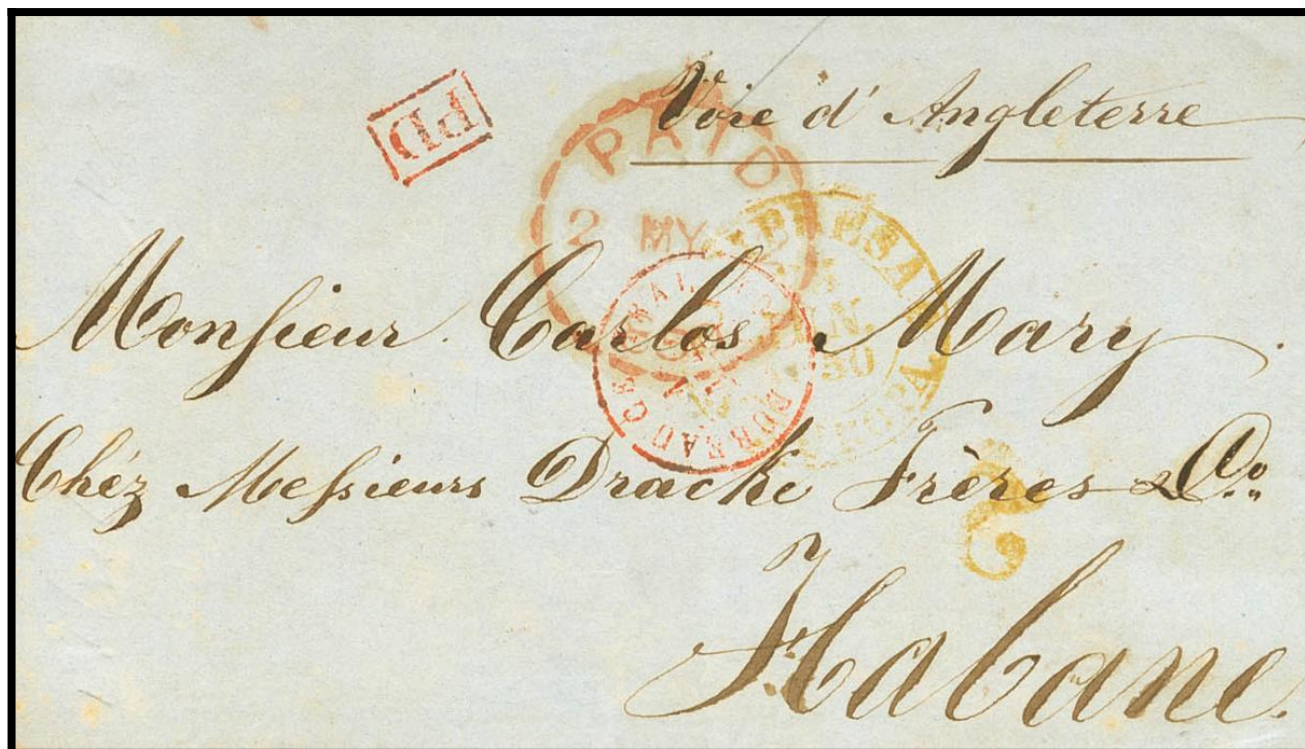 Voie d'Angleterre
PD
PAID
2 MY
Monsieur Carlos Mary
BUREAU
Chéz Messieurs Dracke Frères & Co.
Habane